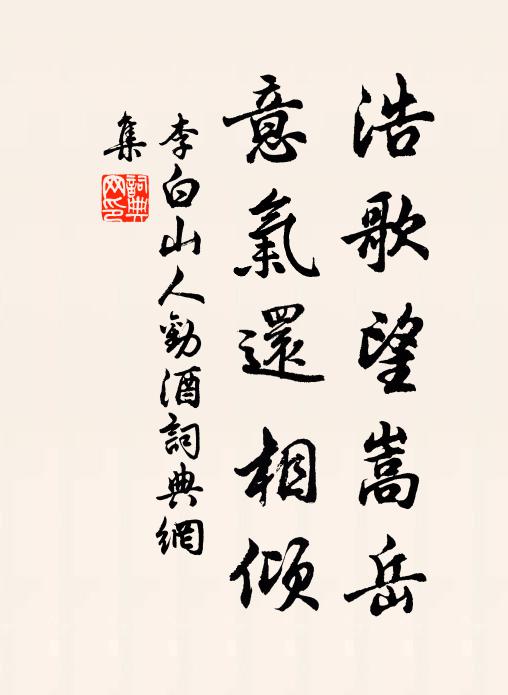 浩歌望嵩岳
意氣還相傾
李白山人勸酒詞典網
集
詞典
网印